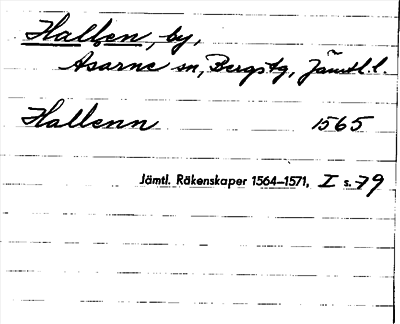 Hallen, by,
Åsarne sn, Bergstg, Jämtl. l.
Hallenn 1565
Jämtl. Räkenskaper 1564–1571, I s. 79